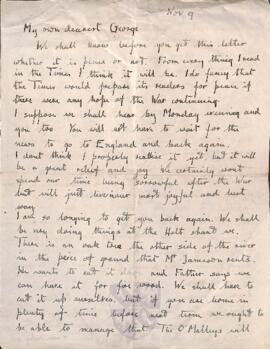 Nov 9
My own dearest George
We shall know before you get this letter
whether it is peace or not. From every thing I read
in the Times I think it will be. I do fancy that
the Times would prepare its readers for peace if
there were any hope of the War continuing.
I suppose we shall hear by Monday evening and
you too. You will not have to wait for the
news to go to England and back again.
I cant think I properly realise it yet, but it will
be a great relief and joy. We certainly wont
spend our time being sorrowful after the War
but will just be more joyful and just
way
I am so longing to get you back again. We shall
be very doing things at the Holt shant we.
There is an oak tree the other side of the river
in the piece of ground that Mr Jameson rents.
He wants to cut it down and Father says we
can have it for fire wood. We shall have to
cut it up ourselves. but if you are home in
plenty of time before next term we ought to
be able to manage that. The O'Malleys will